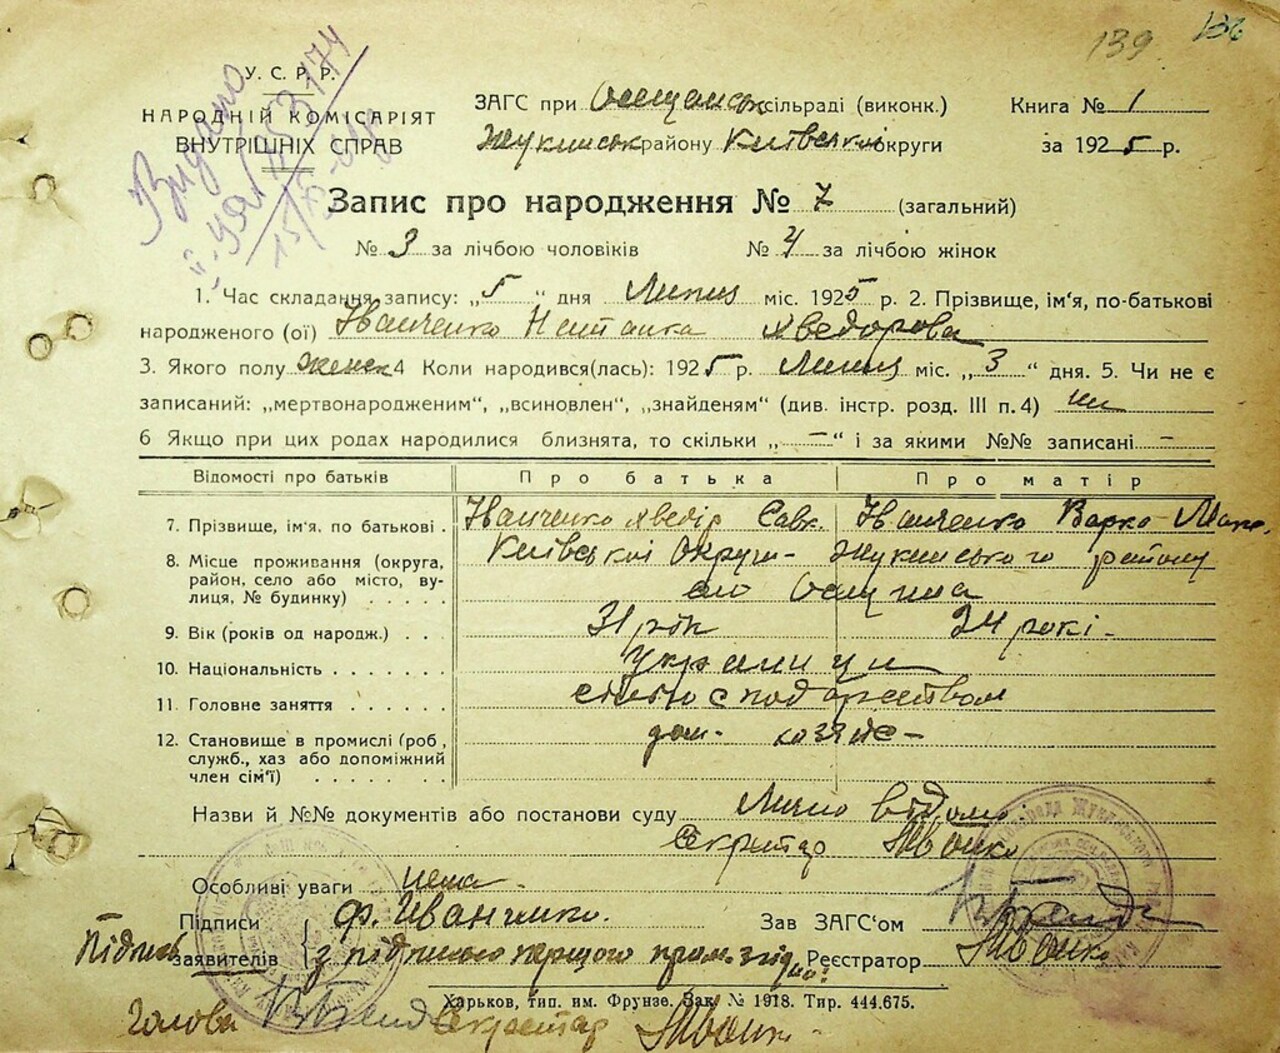 139 136
У. С. Р. Р.
НАРОДНІЙ КОМІСАРІЯТ
ВНУТРІШНІХ СПРАВ
Видано
ЗАГС при Ощицьск сільраді (виконк.) Книга № 1
Жукинськ району Київської округи за 1925 р.
Запис про народження № 7 (загальний)
№ 3 за лічбою чоловіків № 4 за лічбою жінок
1. Час складання запису: „5“ дня Липня міс. 1925 р. 2. Прізвище, ім'я, по-батькові
народженого (ої) Іванченко Настанка Хведорова
3. Якого полу женск 4 Коли народився(лась): 1925 р. Липня міс. „3“ дня. 5. Чи не є
записаний: „мертвонародженим“, „всиновлен“, „знайденям“ (див. інстр. розд. III п. 4) ни
6 Якщо при цих родах народилися близнята, то скільки „ – “ і за якими №№ записані –
Відомості про батьків Про батька Про матір
7. Прізвище, ім'я. по батькові . Іванченко Хведір Савк. Іванченко Варка
8. Місце проживання (округа, район, село або місто, вулиця, № будинку) . . . . . Київської Округи - Жукинського району
село Ощитна
9. Вік (років од народж.) . . . 31 рік 24 років.
10. Національність . . . . . . . українци
11. Головне заняття . . . . . .
12. Становище в промислі (роб, служб., хаз або допоміжний член сім'ї) . . . . . . . дом. хозяйс-
Назви й №№ документів або постанови суду Лично відомо.
Секретар Івонко
Особливі уваги нема
Підписи Ф. Иванченко. Зав ЗАГС'ом
Підпис заявителів з підписью першого Реєстратор Івонко
Харьков, тип. им. Фрунзе. Зак. № 1918. Тир. 444.675.
Голова Секретар Івонко